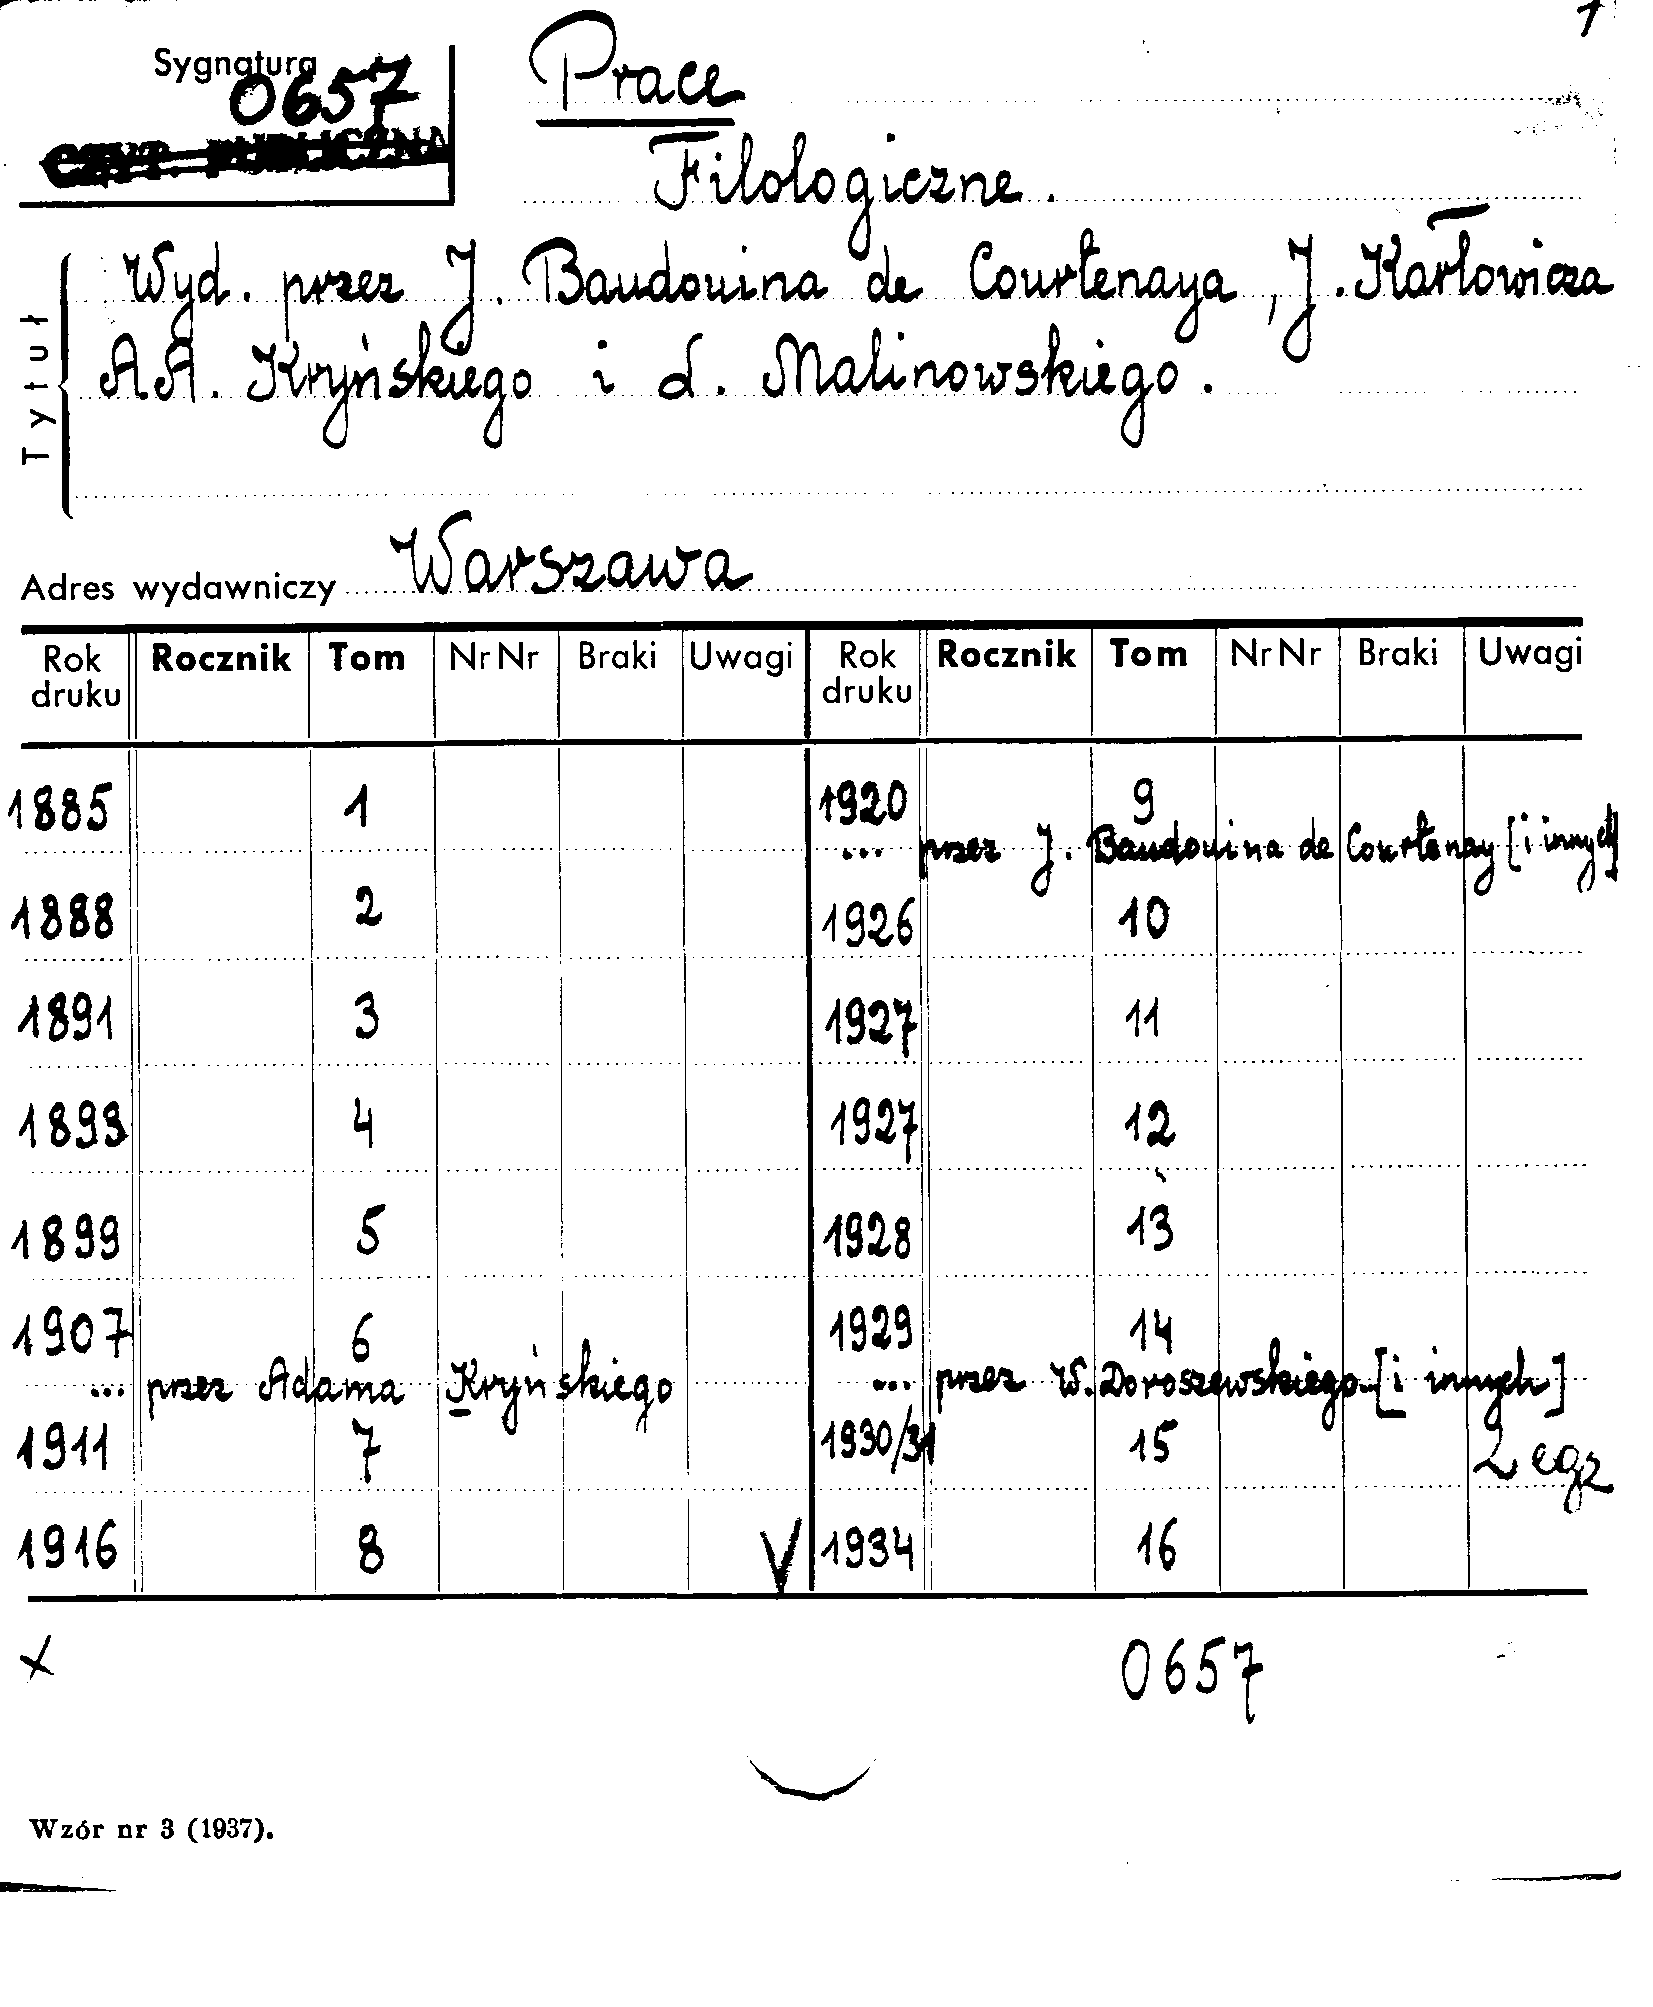 1
Sygnatura
0657
CZYT. PUBLICZNA
Prace
Filologiczne.
Tytuł
Wyd. przez J. Baudouina de Courtenaya, J. Karłowicza
A A. Kryńskiego i L. Malinowskiego.
Adres wydawniczy Warszawa
Rok druku Rocznik Tom Nr Nr Braki Uwagi Rok druku Rocznik Tom Nr Nr Braki Uwagi
1885 1 1920 9
... przez J. Baudouina de Courtenay [i innych]
1888 2 1926 10
1891 3 1927 11
1893 4 1927 12
1899 5 1928 13
1907 6 1929 14
... przez Adama Kryńskiego ... przez W. Doroszewskiego [i innych]
1911 7 1930/31 15 2 egz
1916 8 V 1934 16
x 0657
Wzór nr 3 (1937).